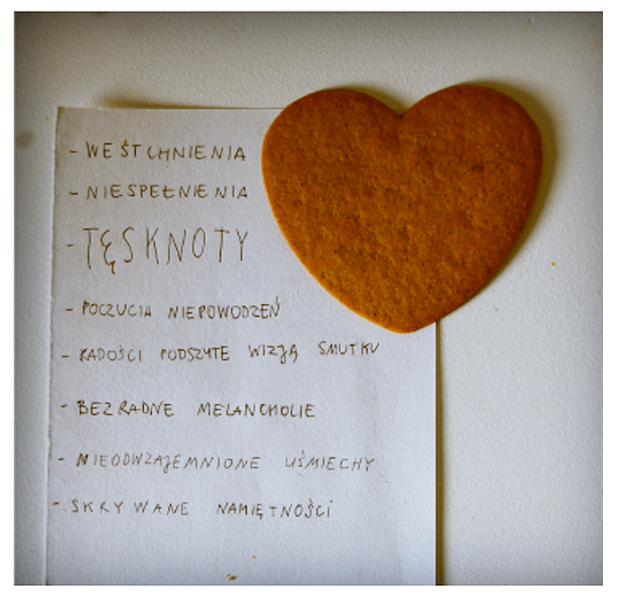 - WESTCHNIENIA
- NIESPEŁNIENIA
- TĘSKNOTY
- POCZUCIA NIEPOWODZEŃ
- RADOŚCI PODSZYTE WIZJĄ SMUTKU
- BEZRADNE MELANCHOLIE
- NIEODWZAJEMNIONE UŚMIECHY
- SKRYWANE NAMIĘTNOŚCI